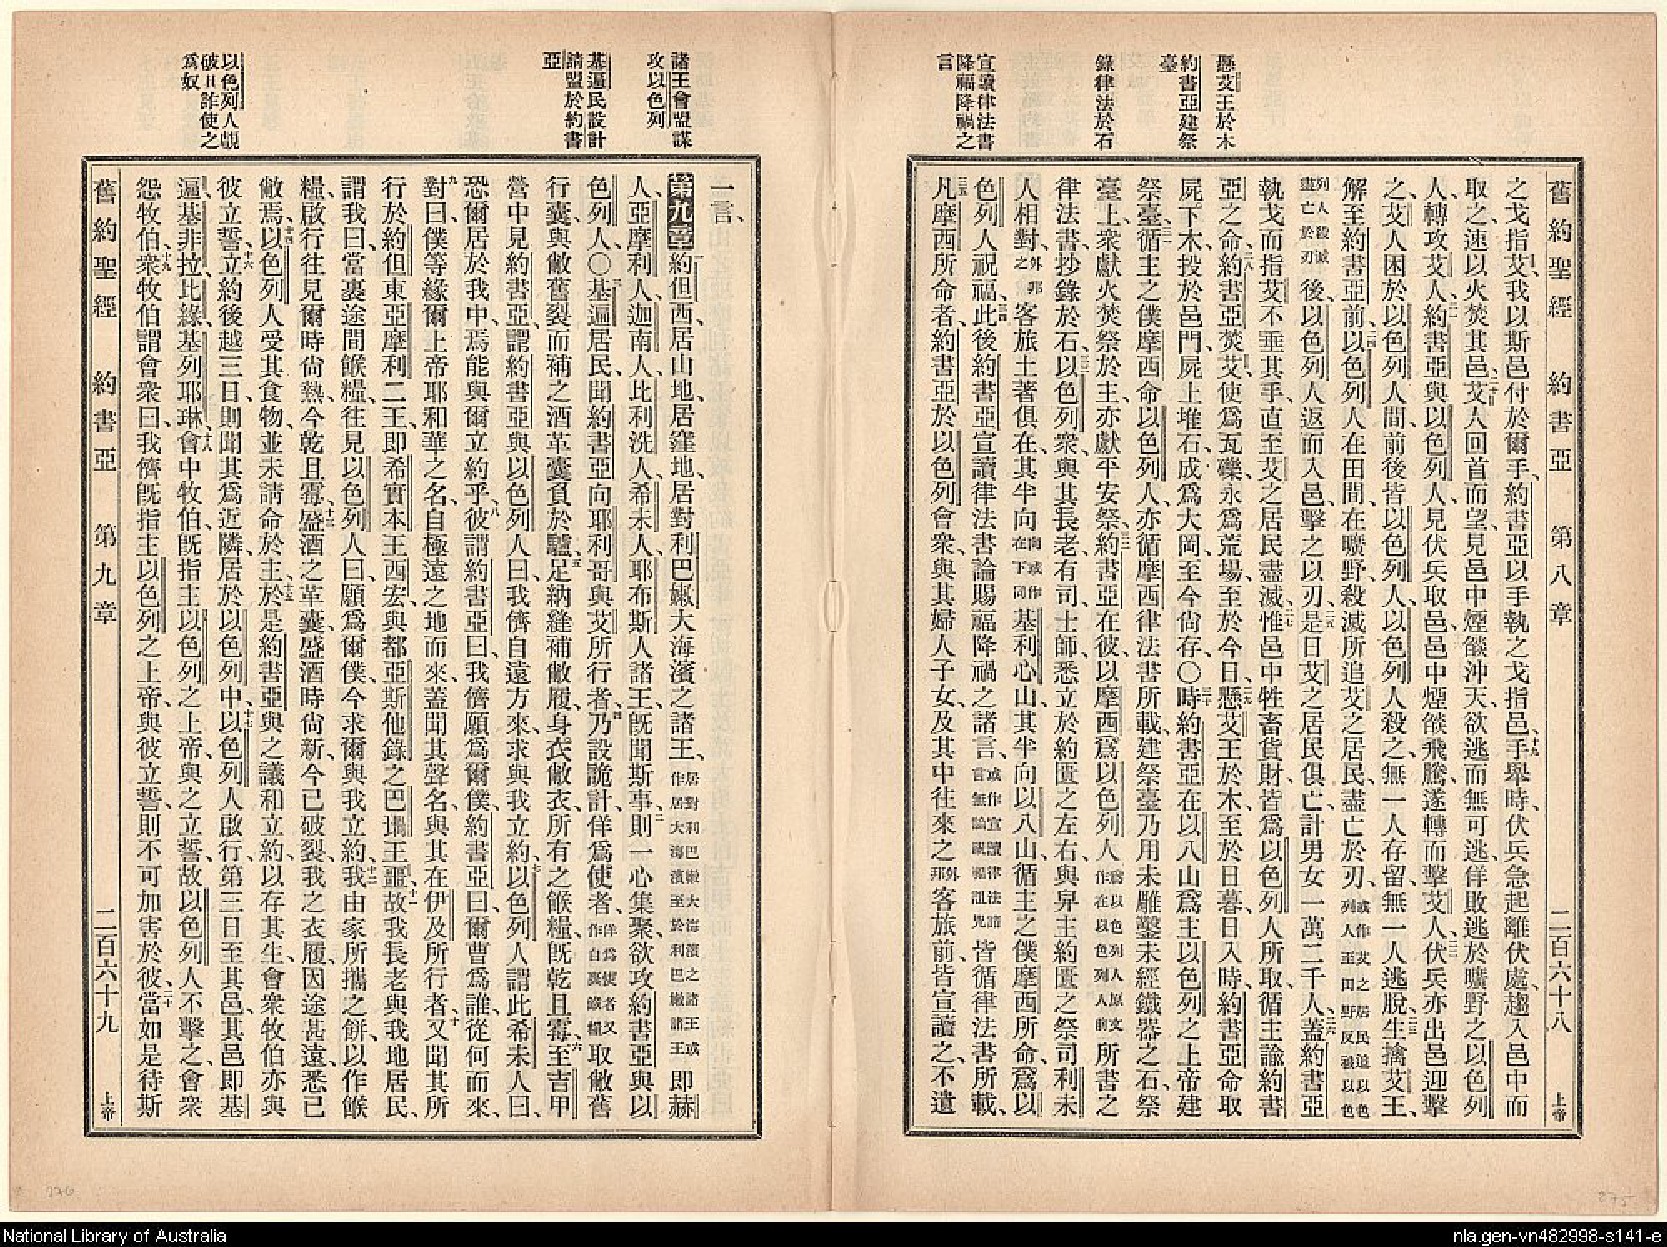 懸艾王於木
約書亞建祭
臺
錄律法於石
宣讀律法書
降福降禍之
言
舊約聖經 約書亞 第八章 二百六十八 上帝
之戈指艾我以斯邑付於爾手、約書亞以手執之戈指邑、十九手舉時、伏兵急起離伏處、趨入邑中而
取之、速以火焚其邑、二十艾人回首而望、見邑中煙燄沖天、欲逃而無可逃、佯敗逃於曠野之以色列
人、轉攻艾人、二一約書亞與以色列人、見伏兵取邑、邑中煙燄飛騰、遂轉而擊艾人、二二伏兵亦出邑迎擊
之、艾人困於以色列人間、前後皆以色列人、以色列人殺之、無一人存留、無一人逃脫、二三生擒艾王、
解至約書亞前、二四以色列人在田間、在曠野、殺滅所追艾之居民、盡亡於刃、
盡亡於刃 後以色列人返而入邑、擊之以刃、二五是日艾之居民俱亡、計男女一萬二千人、二六蓋約書亞
執戈而指艾、不垂其手、直至艾之居民盡滅、二七惟邑中牲畜貨財、皆爲以色列人所取、循主諭約書
亞之命、二八約書亞焚艾、使爲瓦礫、永爲荒場、至於今日、二九懸艾王於木、至於日暮、日入時、約書亞命取
屍下木、投於邑門、屍上堆石、成爲大岡、至今尚存、〇三十時約書亞在以八山、爲主以色列之上帝建
祭臺、三一循主之僕摩西命以色列人、亦循摩西律法書所載、建祭臺、乃用未雕鑿未經鐵器之石、祭
臺上、衆獻火焚祭於主、亦獻平安祭、三二約書亞在彼、以摩西爲以色列人 所書之
律法書、抄錄於石、三三以色列衆、與其長老、有司、士師、悉立於約匱之左右、與舁主約匱之祭司利未
人相對、 客旅土著俱在、其半向 基利心山、其半向以八山、循主之僕摩西所命、爲以
色列人祝福、三四此後約書亞宣讀律法書論賜福降禍之諸言、 皆循律法書所載、
三五凡摩西所命者、約書亞於以色列會衆、與其婦人子女、及其中往來之 客旅前、皆宣讀之、不遺
諸王會盟謀
攻以色列
基遍民設計
請盟於約書
亞
以色列人覷
破其詐使之
爲奴
一言、
第九章 約但西、居山地、居窪地、居對利巴嫩大海濱之諸王、 即赫
人、亞摩利人、迦南人、比利洗人、希未人、耶布斯人諸王、旣聞斯事、二則一心集聚、欲攻約書亞與以
色列人、〇三基遍居民、聞約書亞向耶利哥與艾所行者、四乃設詭計、佯爲使者、 取敝舊
行囊、與敝舊裂而補之酒革囊、負於驢、五足納縫補敝履、身衣敝衣、所有之餱糧、旣乾且霉、六至吉甲
營中見約書亞、謂約書亞與以色列人曰、我儕自遠方來、求與我立約、七以色列人謂此希未人曰、
恐爾居於我中、焉能與爾立約乎、八彼謂約書亞曰、我儕願爲爾僕、約書亞曰、爾曹爲誰、從何而來、
九對曰、僕等緣爾上帝耶和華之名、自極遠之地而來、蓋聞其聲名、與其在伊及所行者、十又聞其所
行於約但東亞摩利二王、即希實本王西宏、與都亞斯他錄之巴珊王噩、十一故我長老與我地居民、
謂我曰、當裹途間餱糧、往見以色列人曰、願爲爾僕、今求爾與我立約、十二我由家所攜之餅、以作餱
糧、啟行往見爾時尚熱、今乾且霉、十三盛酒之革囊、盛酒時尚新、今已破裂、我之衣履、因途甚遠、悉已
敝焉、十四以色列人受其食物、並未請命於主、十五於是約書亞與之議和立約、以存其生、會衆牧伯亦與
彼立誓、十六立約後越三日、則聞其爲近隣、居於以色列中、十七以色列人啟行、第三日至其邑、其邑即基
遍、基非拉、比綠、基列耶琳、十八會中牧伯、旣指主以色列之上帝、與之立誓、故以色列人不擊之、會衆
怨牧伯、十九衆牧伯謂會衆曰、我儕旣指主以色列之上帝、與彼立誓、則不可加害於彼、二十當如是待斯
舊約聖經 約書亞 第九章 二百六十九 上帝
276
275
National Library of Australia
nla.gen-vn482998-s141-e